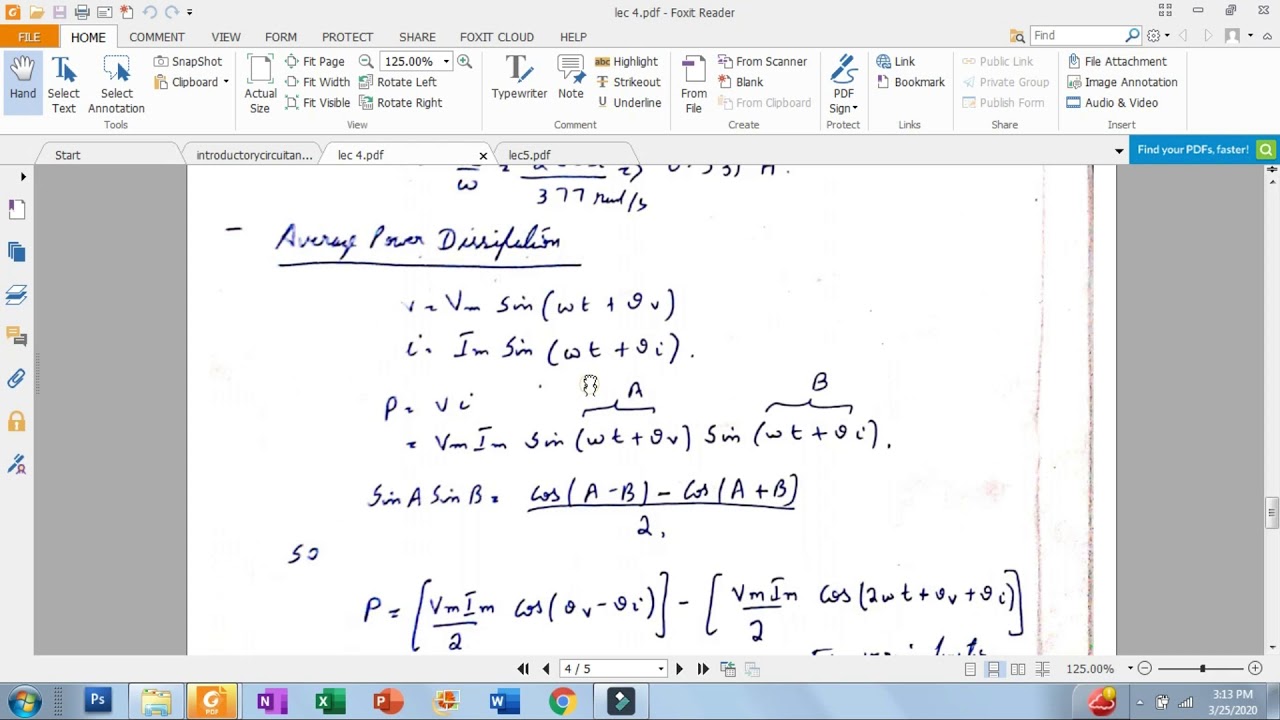 lec 4.pdf - Foxit Reader
FILE HOME COMMENT VIEW FORM PROTECT SHARE FOXIT CLOUD HELP Find
Hand Select Text Select Annotation SnapShot Clipboard Tools
Actual Size Fit Page Fit Width Fit Visible 125.00% Rotate Left Rotate Right View
Typewriter Note Highlight Strikeout Underline Comment
From File From Scanner Blank From Clipboard Create
PDF Sign Protect
Link Bookmark Links
Public Link Private Group Publish Form Share
File Attachment Image Annotation Audio & Video Insert
Start introductorycircuitan... lec 4.pdf lec5.pdf Find your PDFs, faster!
ω
377 rad/s
- Average Power Dissipation
v = Vm Sin (ωt + θv)
i = Im Sin (ωt + θi).
A B
P = Vi
= VmIm Sin (ωt + θv) Sin (ωt + θi).
Sin A Sin B = Cos(A - B) - Cos(A + B)
2.
so
P = [VmIm Cos(θv - θi)] - [VmIm Cos(2ωt + θv + θi)]
2 2
4 / 5 125.00%
Ps PDF N X P W
3:13 PM
3/25/2020